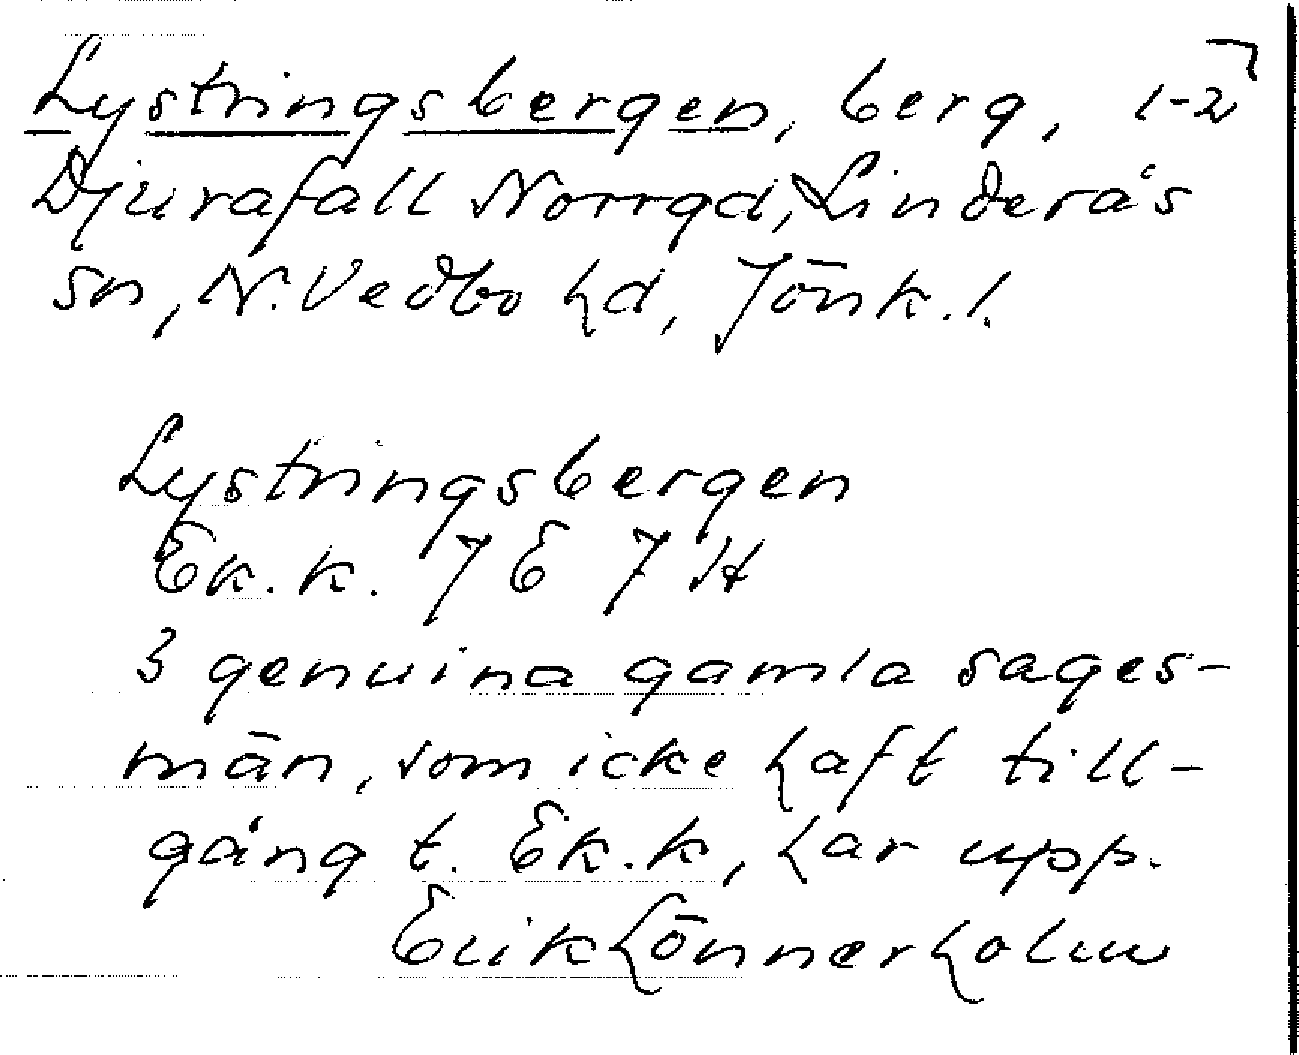 Lystringsbergen, berg, 1-2
Djurafall Norrgd, Linderås
sn, N. Vedbo hd, Jönk. l.
Lystringsbergen
Ek. k. 7 E 7 H
3 genuina gamla sages-
män, som icke haft till-
gång t. Ek. k, har upp.
Erik Lönnerholm